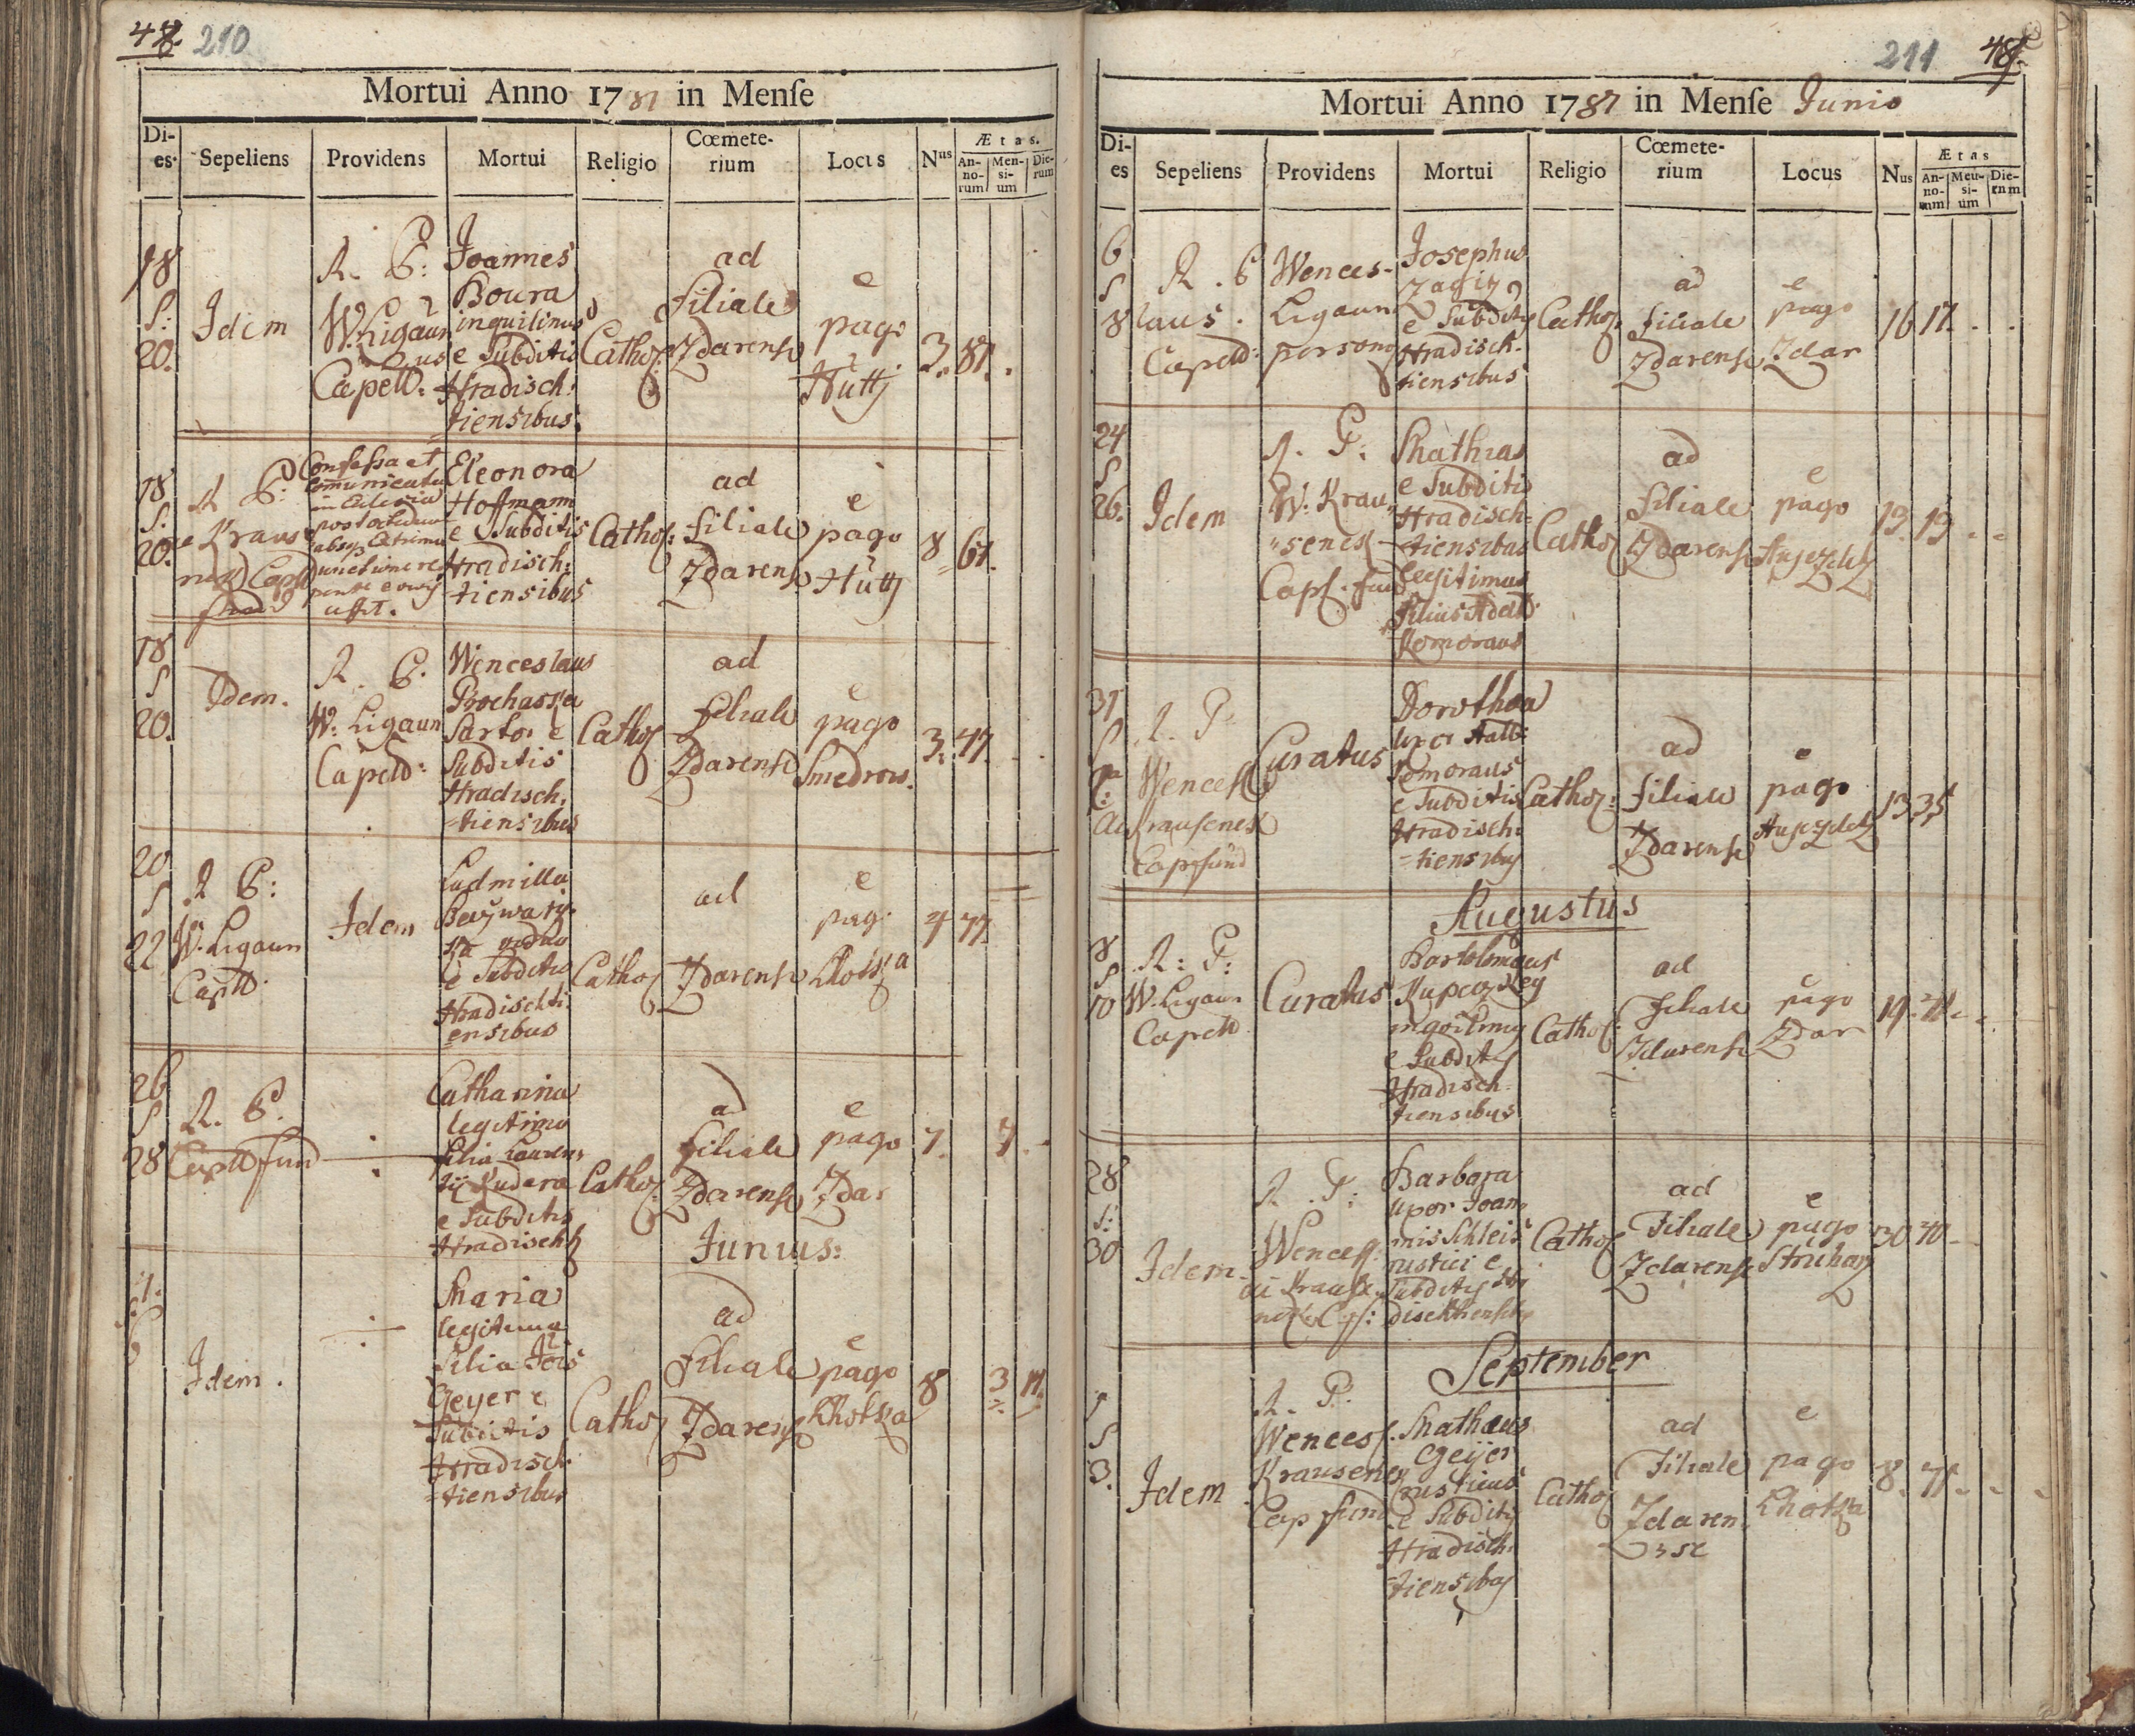 210
Mortui Anno 1787 in Menſe
Di-es.
Sepeliens
Providens
Mortui
Religio
Cœmete-rium
Locus
Nus
Ætas.
An-no-rum
Men-si-um
Die-rum
18
S:
20.
Idem
R. P:
W. Ligaun
Capell:
Joannes
Boura
inquilinus
e Subditis
Hradisch:
tiensibus.
Cathol:
ad
filiale
Zdarense
e
pago
Hutty
3.
81.
18
S:
20.
R. P:
Confessa et
in Ecclesia
Eleonora
Hoffmann
e Subditis
Hradisch:
tiensibus
Cathol:
ad
filiale
Zdarense
e
pago
Hutty
8
61.
18
S
20.
Idem.
R. P.
W. Ligaun
Capell:
Wenceslaus
Prochaska
Sartor e
Subditis
Hradisch,
=tiensibus
Cathol
ad
filiale
Zdarense
e
pago
Smedrow.
3.
47.
20
S
22
R P:
W. Ligaun
Capell.
Idem
Ludmilla
e Subditis
Hradischti
ensibus
Cathol
ad
Zdarense
e
pag.
Lhotka
4
77.
26
S
28
R. P.
Capell fund
Catharina
legitima
filia Lauren,
tij Kudera
e Subditis
Hradischt
Cathol
ad
filiale
Zdarense
e
pago
Zdar
7.
7.
Junius:
Idem.
Maria
legitima
filia Jois
Geyer e
Subditis
Hradisch:
=tiensibus
Cathol
ad
filiale
Zdarens
e
pago
Lhotka
8
3
11.
211
Mortui Anno 1787 in Menſe Junio
Di-es
Sepeliens
Providens
Mortui
Religio
Cœmete-rium
Locus
Nus
Ætas
An-no-rum
Men-si-um
Die-rum
6
S
8
R. P Wences-
laus. Ligaun
Capell: persona
Josephus
e Subditis
Hradisch.
tiensibus
Cathol.
ad
filiale
Zdarense
e
pago
Zdar
16
17.
24
S
26.
Idem
R. P:
W. Krau,
"senek
Capl. fund
Mathias
e Subditis
Hradisch:
tiensibus
legitimus
filius Adalb:
Komoraus
Cathol
ad
filiale
Zdarense
e
pago
Augezdetz
13.
19
31
R. P:
Wencesl
Krausenek
Cap fund
Curatus
Dorothea
uxor Adalb:
Komoraus
e Subditis
Hradisch:
=tiensibus
Cathol:
ad
filiale
Zdarense
e
pago
Augezdetz
13
35
Augustus
8
S
10
R: P:
W. Ligaun
Capell
Curatus
Bartolomaeus
inquilinus
e Subditis
Hradisch.
tiensibus
Cathol:
ad
filiale
Zdarense
e
pago
Zdar
19.
71.
28
S:
30
Idem.
R. P:
Wencesl.
Barbara
uxor Joan,
nis Schleis
rustici e
Cathol
ad
Filiale
Zdarense
e
pago
Struharz
30
40
September
1
S
3.
Idem
R. P.
Wencesl.
Krausenek
Cap fund
Mathaeus
Geijer
rusticus
e Subditis
Hradisch.
tiensibus
Cathol
ad
Filiale
Zdaren,
se
e
pago
Lhotka
8.
71.